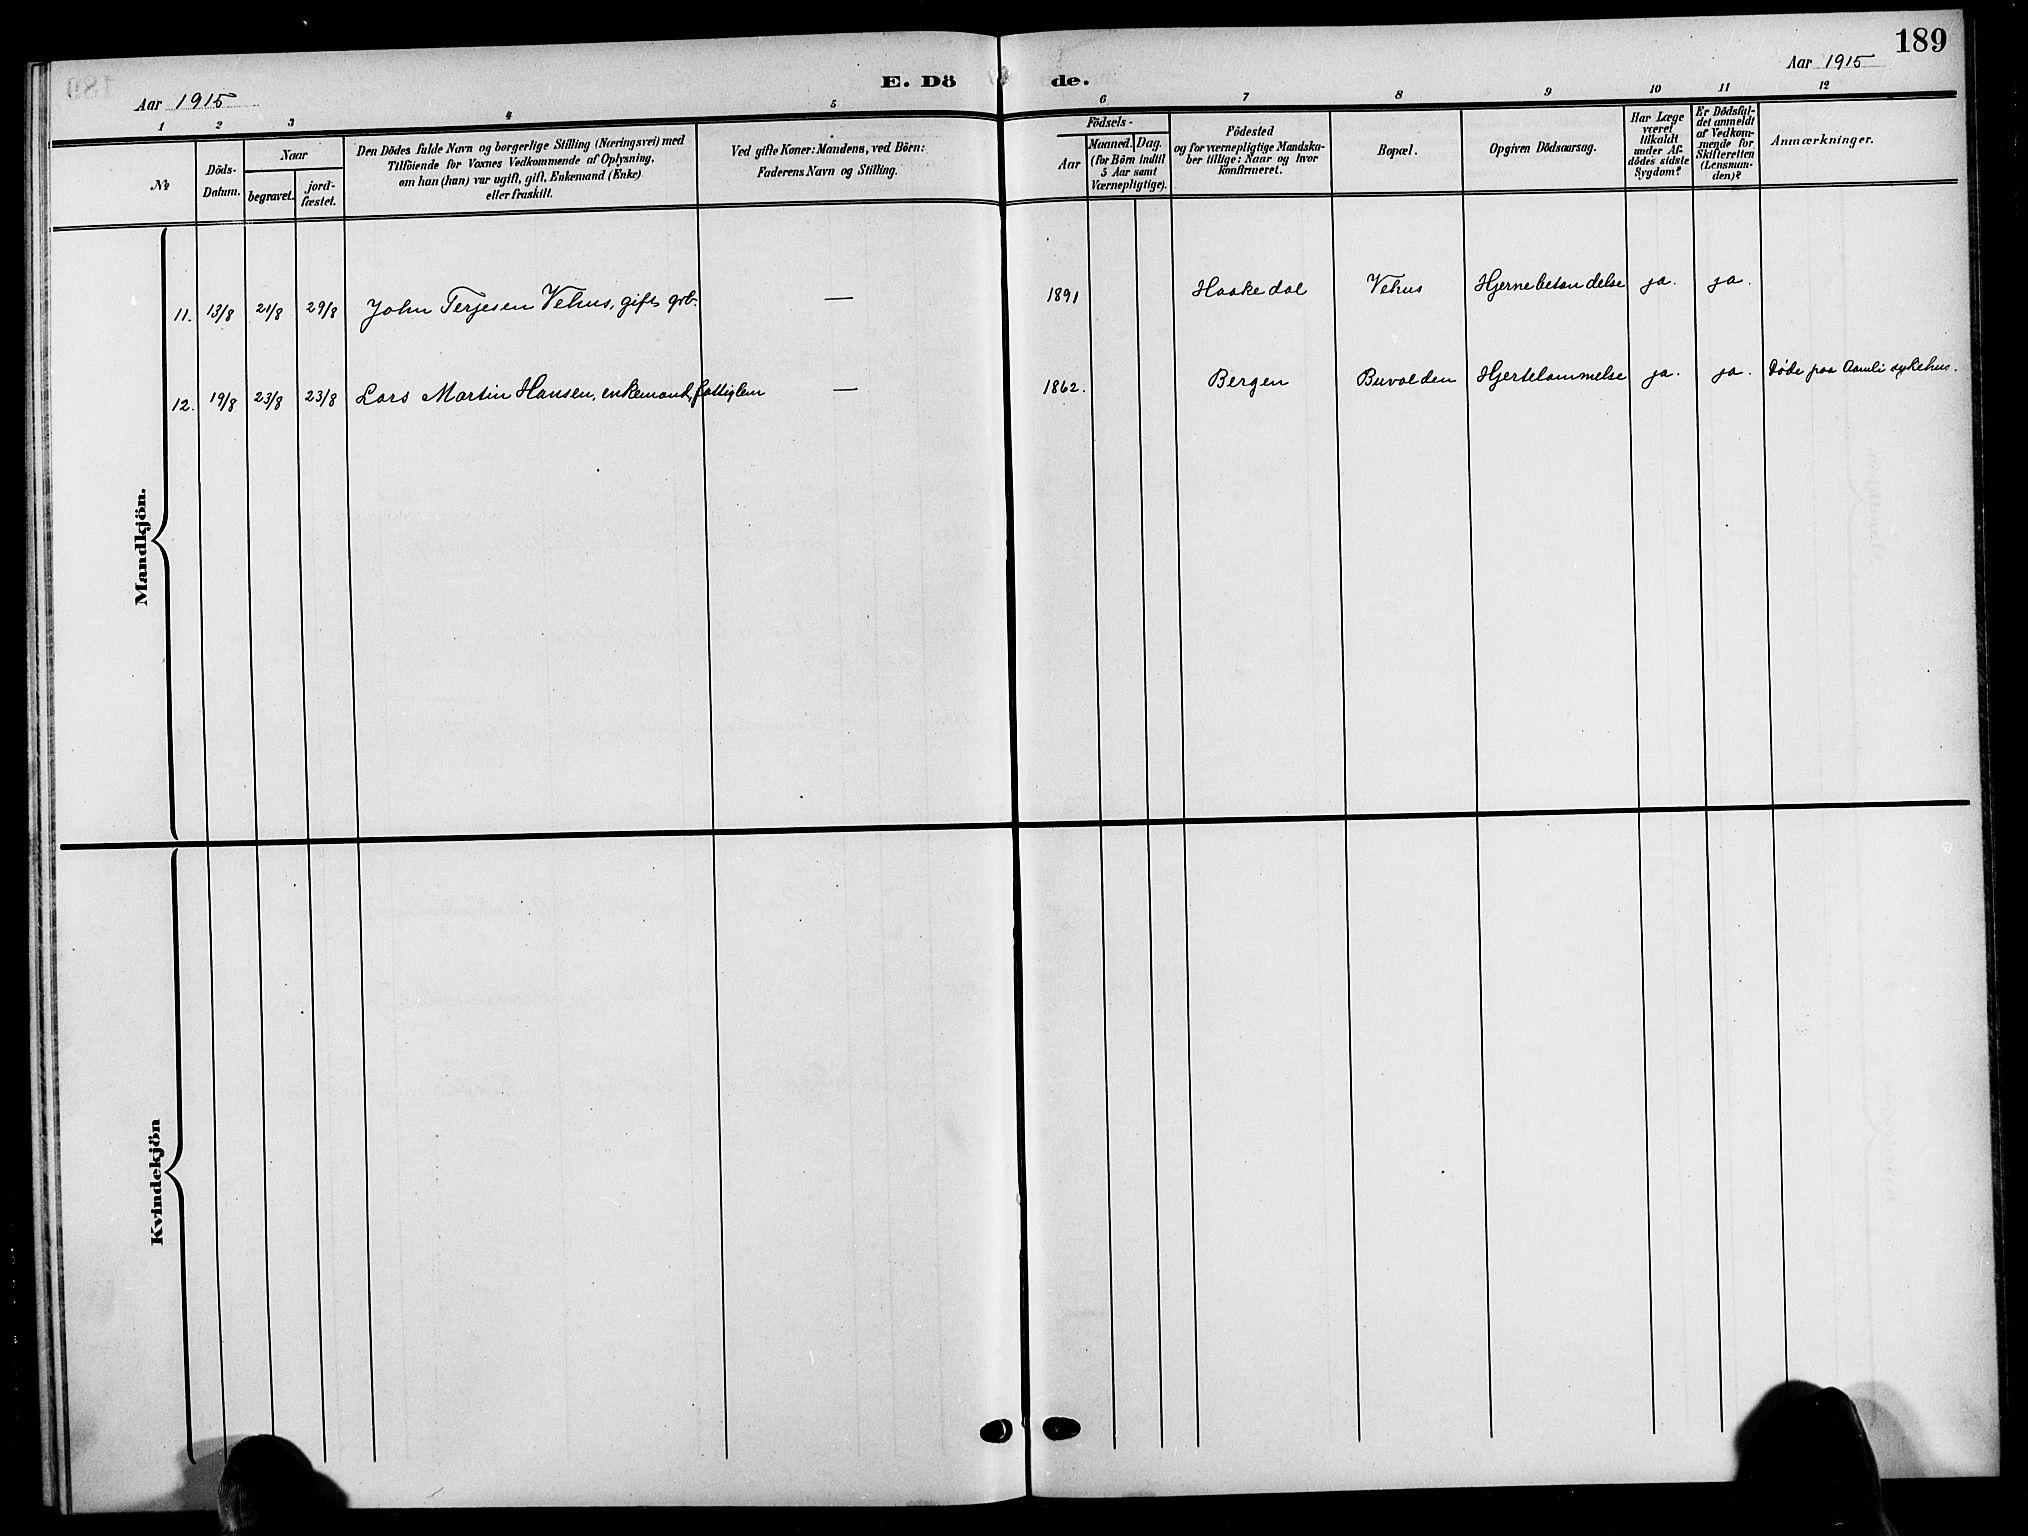 189
E. Dö de.
Aar 1915
Aar 1915
1 2 3 4 5 6 7 8 9 10 11 12
No
Döds-
Datum.
Naar
begravet.
jord-
fæstet.
Den Dödes fulde Navn og borgerlige Stilling (Næringsvei) med
Tilföiende for Voxnes Vedkommende af Oplysning,
om han (hun) var ugift, gift, Enkemand (Enke)
eller fraskilt.
Ved gifte Koner: Mandens, ved Börn:
Faderens Navn og Stilling.
Födsels-
Aar
Maaned. Dag.
(for Börn indtil
5 Aar samt
Værnepligtige).
Födested
og for værnepligtige Mandska-
ber tillige: Naar og hvor
konfirmeret.
Bopæl.
Opgiven Dödsaarsag.
Har Læge
været
tilkaldt
under Af-
dödes sidste
Sygdom?
Er Dödsfal-
det anmeldt
af Vedkom-
mende for
Skifteretten
(Lensman-
den)?
Anmærkninger.
Mandkjön.
11. 13/8 21/8 29/8 John Terjesen Vehus, gift, grb. — 1891 Haakedal Vehus Hjernebetændelse ja. ja.
12. 19/8 23/8 23/8 Lars Martin Hansen, enkemand, fattiglem — 1862. Bergen Buvolden Hjertelammelse ja. ja. Døde paa Aamli sykehus.
Kvindekjön